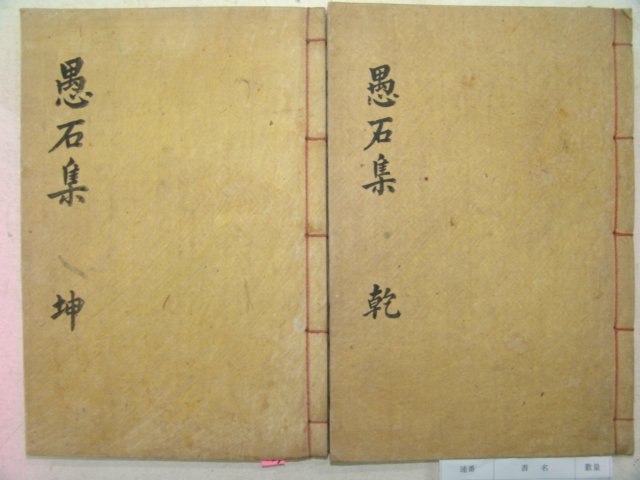 愚石集 乾
愚石集 坤
連番 書名 數量